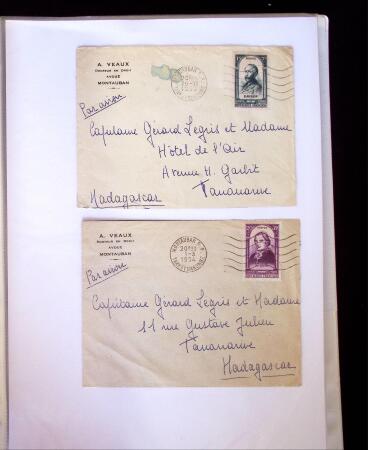 A. VEAUX
DOCTEUR EN DROIT
AVOUÉ
MONTAUBAN
Par avion
MONTAUBAN R.P.
TARN-ET-GARONNE
Capitaine Gérard Legris et Madame
Hôtel de l'Air
Avenue H. Garbit
Tananarive
Madagascar
A. VEAUX
DOCTEUR EN DROIT
AVOUÉ
MONTAUBAN
Par avion
MONTAUBAN R.P.
1-3
1954
TARN-ET-GARONNE
Capitaine Gérard Legris et Madame
11 rue Gustave Julien
Tananarive
Madagascar